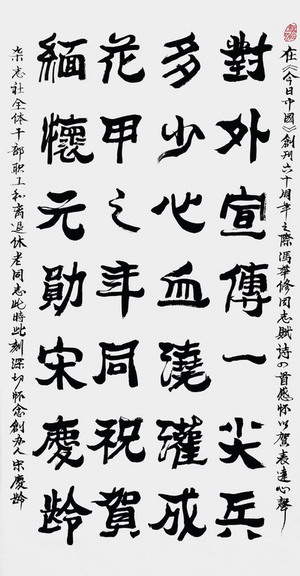 在《今日中國》創刊六十周年之際馮華修同志賦詩四首感怀以賀表達心聲
對外宣傳一尖兵
多少心血澆灌成
花甲之年同祝賀
緬懷元勛宋慶龄
杂志社全体干部职工和离退休老同志此時此刻深切怀念創办人宋慶龄